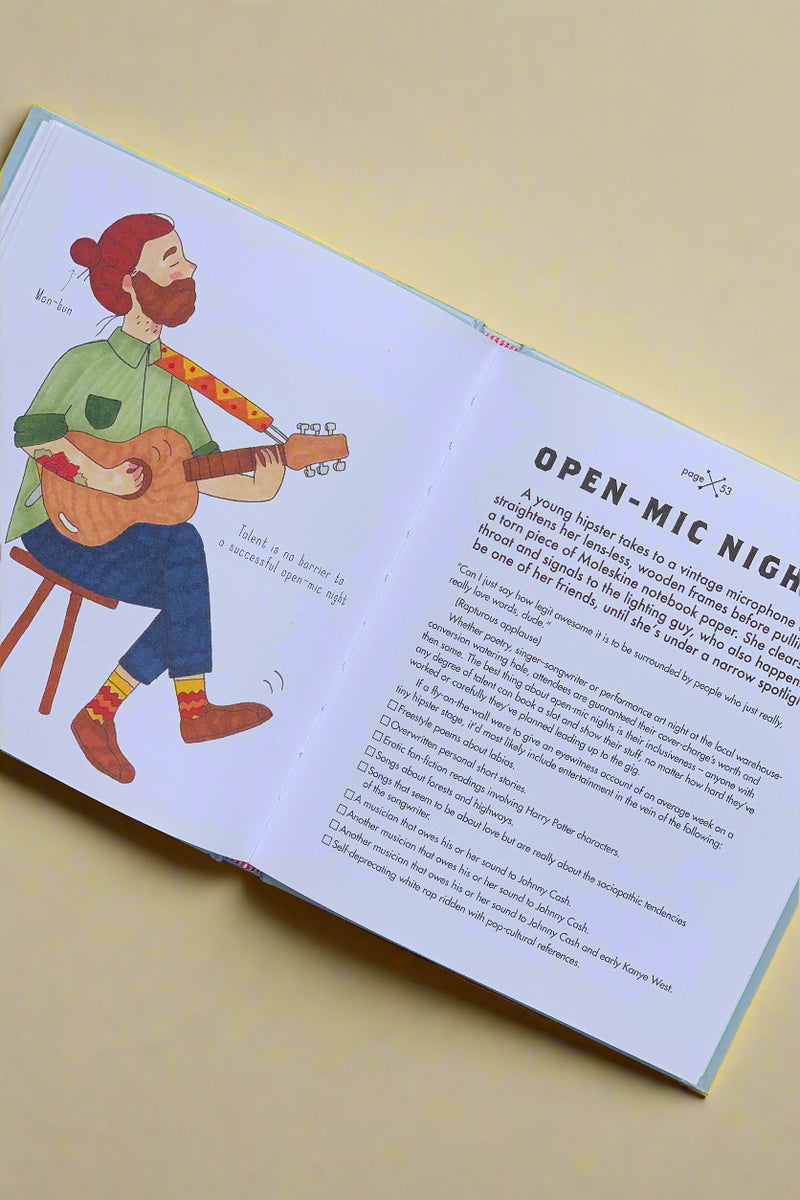 Man-bun
Talent is no barrier to
a successful open-mic night
page 53
OPEN-MIC NIGH
A young hipster takes to a vintage microphone
straightens her lens-less, wooden frames before pulli
a torn piece of Moleskine notebook paper. She clears
throat and signals to the lighting guy, who also happen
be one of her friends, until she's under a narrow spotlig
"Can I just say how legit awesome it is to be surrounded by people who just really,
really love words, dude."
(Rapturous applause)
Whether poetry, singer-songwriter or performance art night at the local warehouse-
conversion watering hole, attendees are guaranteed their cover-charge's worth and
then some. The best thing about open-mic nights is their inclusiveness – anyone with
any degree of talent can book a slot and show their stuff, no matter how hard they've
worked or carefully they've planned leading up to the gig.
If a fly on the wall were to give an eyewitness account of an average week on a
tiny hipster stage, it'd most likely include entertainment in the vein of the following:
☐ Freestyle poems about labias.
☐ Overwritten personal short stories.
☐ Erotic fan-fiction readings involving Harry Potter characters.
☐ Songs about forests and highways.
☐ Songs that seem to be about love but are really about the sociopathic tendencies
of the songwriter.
☐ A musician that owes his or her sound to Johnny Cash.
☐ Another musician that owes his or her sound to Johnny Cash.
☐ Another musician that owes his or her sound to Johnny Cash and early Kanye West.
☐ Self-deprecating white rap ridden with pop-cultural references.